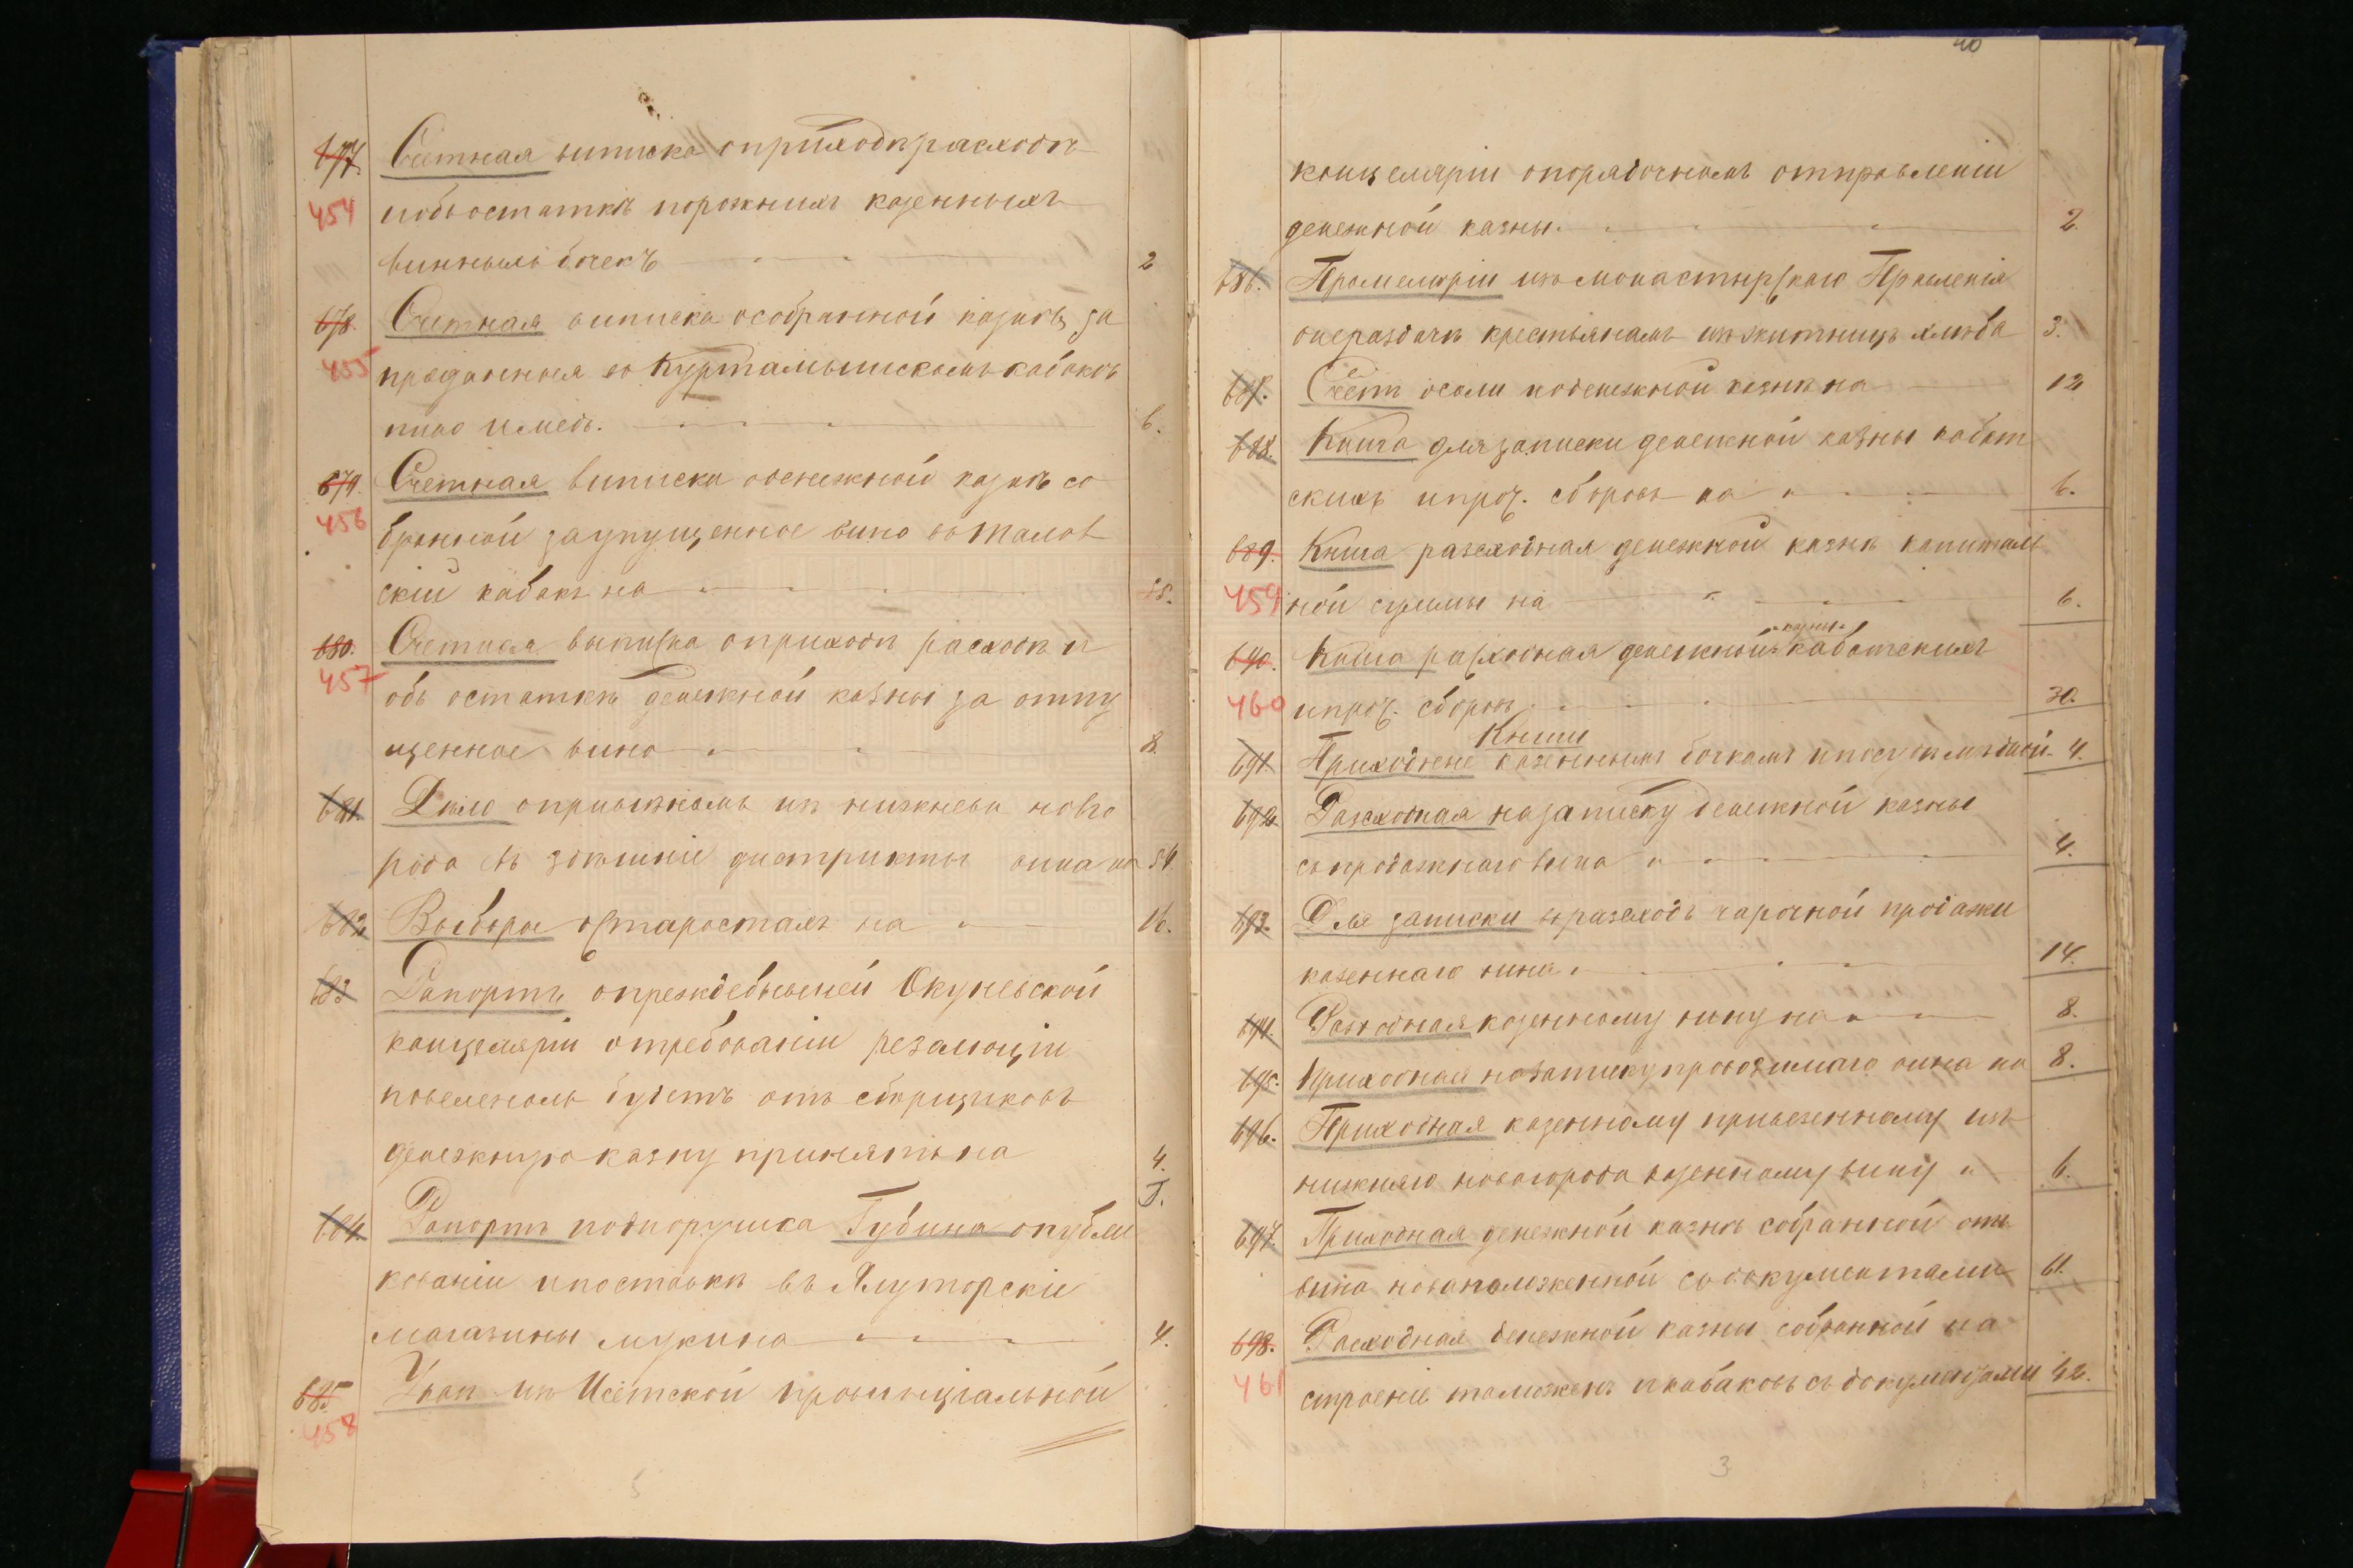 677. Счетная выписка о приходѣ расходѣ
454 и объ остаткѣ порожнихъ казенныхъ
винныхъ бочекъ 2
678. Счетная выписка о собранной казнѣ за
455 проданныя въ Куртамышскомъ кабакѣ
пиво и медъ. 6.
679. Счетная выписка о денежной казнѣ со
456 бранной за упущенное вино въ Талов
скій кабакъ на
680. Счетная выписка о приходѣ расходѣ и
457 объ остаткѣ денежной казны за отпу
щенное вино 8.
681. Дѣло о привозномъ изъ нижнева новго
рода въ здѣшніе дистрикты вина на 54.
682. Выборы о старостахъ на 16.
683 Рапортъ о прежде бывшей Окуневской
канцеляріи о требованіи резолюціи
повеленоль будетъ отъ сборщиковъ
денежную казну принять на 4.
684. Рапортъ подпоручика Губина о публи
кованіи и поставкѣ въ Ялуторскіе
магазины муки на 4.
685. Указъ изъ Исетской провинціальной
458
40
канцеляріи о порядочномъ отправленіи
денежной казны. 2.
686. Промеморіи изъ монастырскаго Правленія
о не раздачѣ крестьянамъ изъ житницъ хлѣба 3.
687. Счет о соли и о денежной казнѣ на 12
688. Книга для записки денежной казны кабат
скихъ и проч. сборовъ на 6.
689. Книга расходная денежной казнѣ капиталь
459 ной суммы на 6.
казны
690. Книга расходная денежной кабатскихъ
460 и проч. сборовъ 30.
Книги
691. Приходные казеннымъ бочкамъ и посудѣ мѣдной 4.
692. Расходная на записку денежной казны
съ продажнаго вина 4.
693. Для записки въ расходъ чарочной продажи
казеннаго вина. 14.
694. Расходная казенному вину на 8.
695. Приходная на записку провозимаго вина на 8.
696. Приходная казенному привезенному изъ
нижняго новагорода казенному вину 6.
697. Приходная денежной казнѣ собранной отъ
вина новоположенной съ документами 61.
698. Расходная денежной казны собранной на
461 строеніе таможенъ и кабаковъ съ документами 42.
3